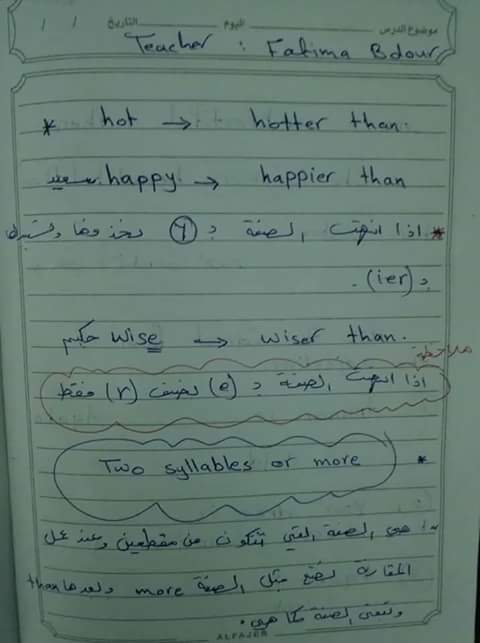 موضوع الدرس اليوم التاريخ / /
Teacher : Fatima Bdour
* hot → hotter than.
سعيد happy → happier than
* اذا انتهت الصفة بـ (y) نحذفها ونستبدلها
بـ (ier) .
حكيم wise → wiser than.
ملاحظة
اذا انتهت الصفة بـ (e) نضيف (r) فقط
Two syllables or more *
هي الصفة التي تتكون من مقطعين وعند عمل
المقارنة نضع قبل الصفة more وبعدها than
وتبقى الصفة كما هي .
ALFAJER